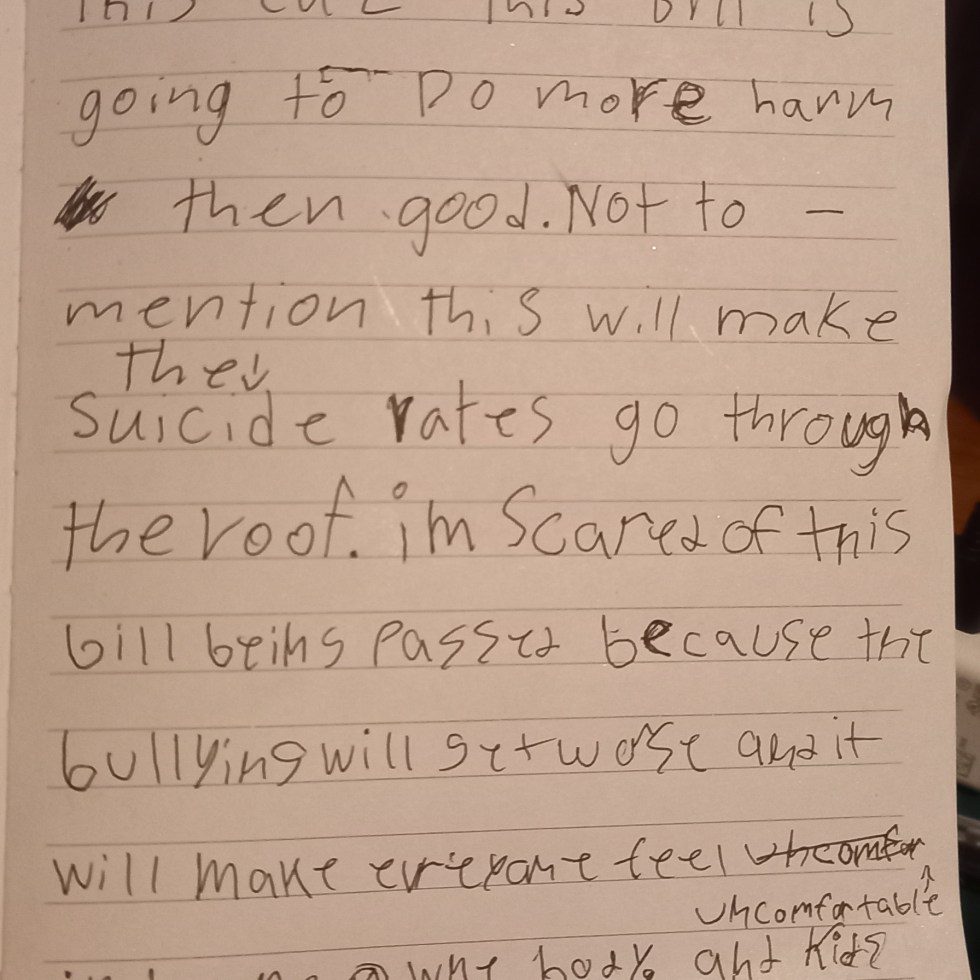 this cuz this bill is
going to Do more harm
then good. Not to -
mention this will make
the
Suicide rates go through
the roof. im Scared of this
bill being passed because the
bullying will get worse and it
will make everyone feel uncomfor
uncomfortable
owne body and kids